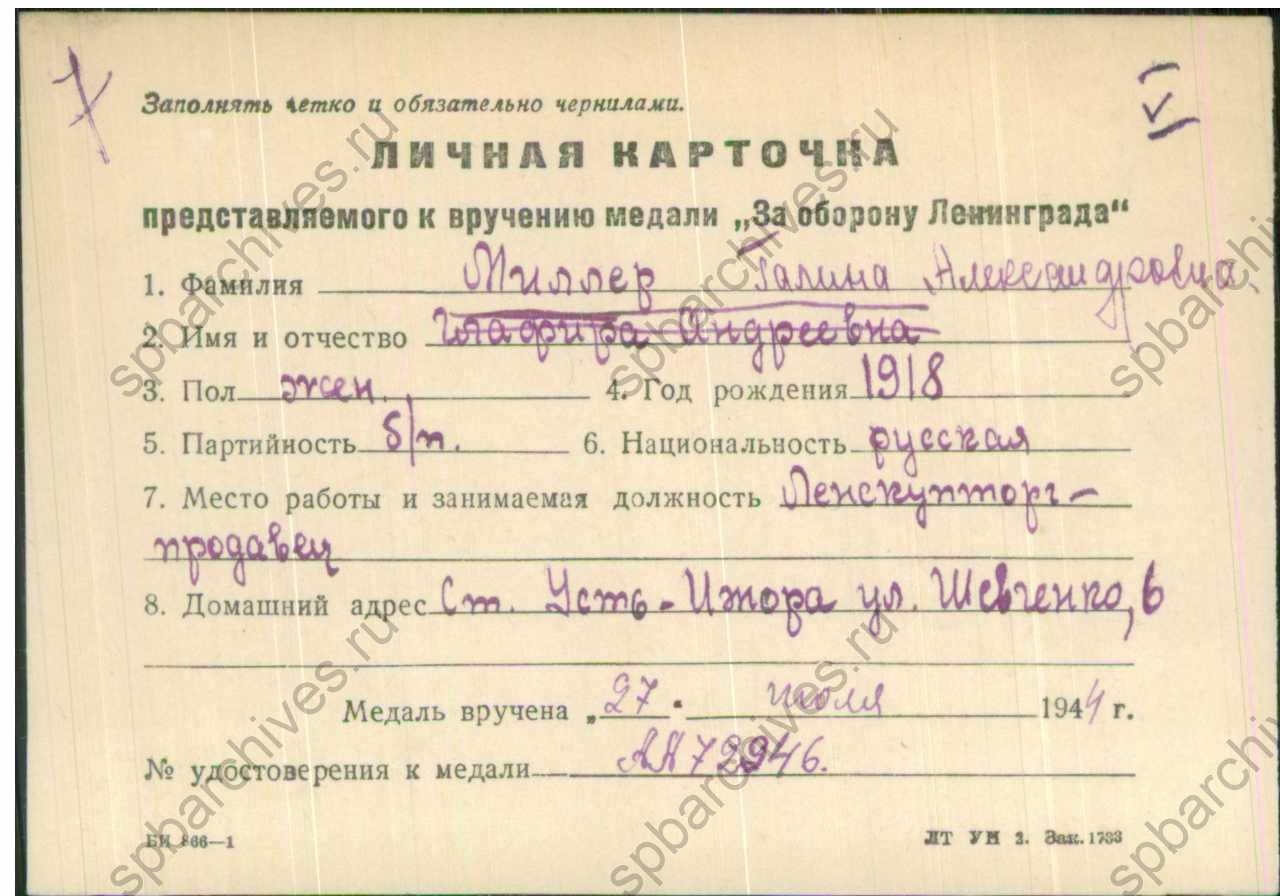 Заполнять четко и обязательно чернилами.
ЛИЧНАЯ КАРТОЧКА
представляемого к вручению медали „За оборону Ленинграда“
1. Фамилия Миллер Галина Александровна
2. Имя и отчество Глафира Андреевна
3. Пол жен. 4. Год рождения 1918
5. Партийность б/п. 6. Национальность русская
7. Место работы и занимаемая должность Ленскупторг -
продавец
8. Домашний адрес Ст. Усть-Ижора ул. Шевченко, 6
Медаль вручена „27" июля 1944 г.
№ удостоверения к медали АА72946.
БИ 866—1 ЛТ УИ 2. Зак. 1733
spbarchives.ru